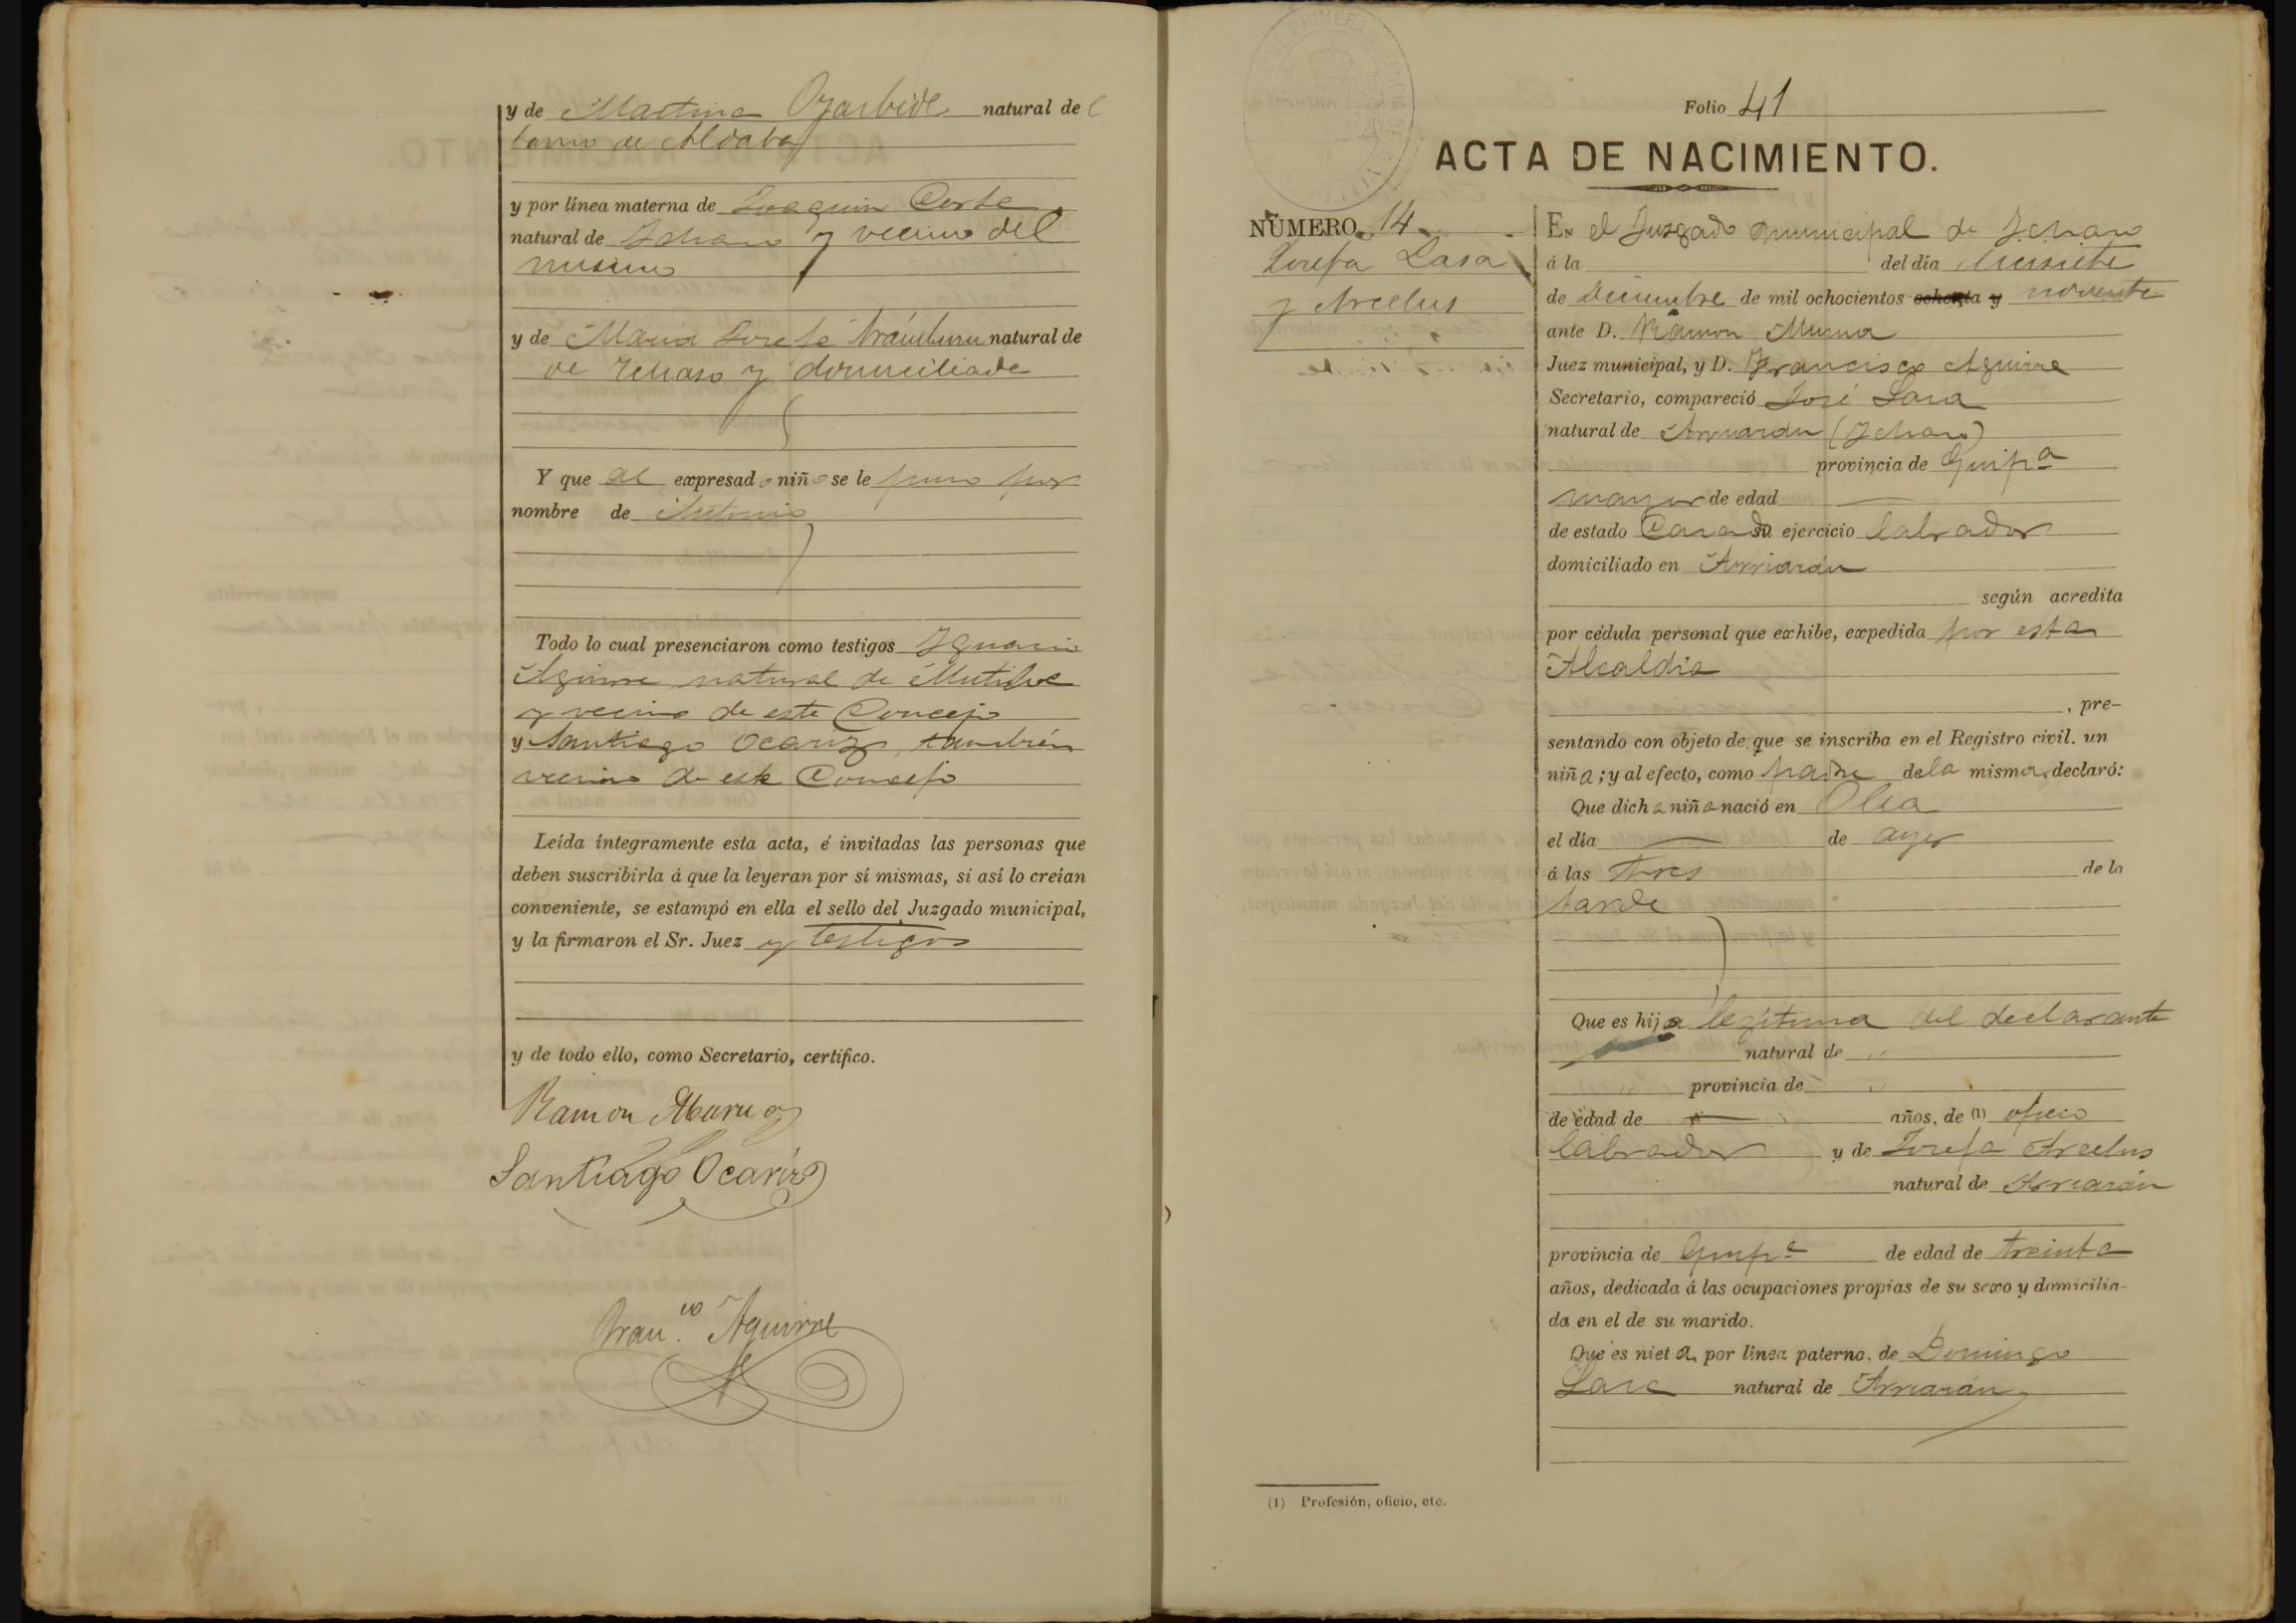 y de Martina Ozarbide natural de l
barrio de Aldaba
y por línea materna de Joaquin Corta
natural de Ichaso y vecino del
mismo
y de Maria Josefa natural de
de Ichaso y domiciliada
Y que al expresado niño se le puso por
nombre de Antonio
Todo lo cual presenciaron como testigos Ignacio
Aguirre natural de Mutiloa
y vecino de este Concejo
y Santiago Ocariz, también
vecino de este Concejo
Leída íntegramente esta acta, é invitadas las personas que
deben suscribirla á que la leyeran por sí mismas, si así lo creían
conveniente, se estampó en ella el sello del Juzgado municipal,
y la firmaron el Sr. Juez y testigos
y de todo ello, como Secretario, certifico.
Ramon
Santiago Ocariz
Fran.co Aguirre
Folio 41
ACTA DE NACIMIENTO.
NÚMERO 14
Josefa Lasa
y Arcelus
EN el Juzgado municipal de Ichaso
á la del día diecisiete
de Diciembre de mil ochocientos ochenta y noventa
ante D. Ramon
Juez municipal, y D. Francisco Aguirre
Secretario, compareció José Lasa
natural de Arriarán (Ichaso)
provincia de Guip.a
mayor de edad
de estado Casado su ejercicio labrador
domiciliado en Arriarán
según acredita
por cédula personal que exhibe, expedida por esta
Alcaldia
, pre-
sentando con objeto de que se inscriba en el Registro civil. un
niña; y al efecto, como padre de la misma, declaró:
Que dicha niña nació en Olea
el día — de ayer
á las tres de la
tarde
Que es hija legítima del declarante
natural de "
" provincia de "
de edad de — años, de (1) oficio
labrador y de Josefa Arcelus
natural de Arriarán
provincia de Guip.a de edad de treinta
años, dedicada á las ocupaciones propias de su sexo y domicilia-
da en el de su marido.
Que es nieta por línea paterna, de Domingo
Lasa natural de Arriarán
(1) Profesión, oficio, etc.